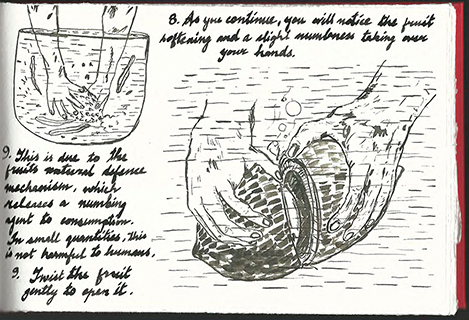 8. As you continue, you will notice the fruit
softening and a slight numbness taking over
your hands.
9. This is due to the
fruits natural defence
mechanism, which
releases a numbing
agent to consumption.
In small quantities, this
is not harmful to humans.
9. Twist the fruit
gently to open it.